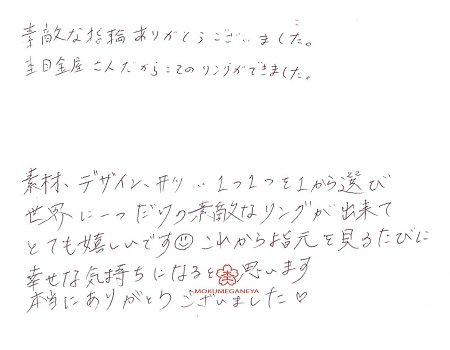 素敵な指輪ありがとうございました。
杢目金屋さんだからこそのリングができました。
素材、デザイン、形 … 1つ1つを1から選び
世界に一つだけの素敵なリングが出来て
とても嬉しいです☺ これから指元を見るたびに
幸せな気持ちになると思います
MOKUMEGANEYA
本当にありがとうございました♡